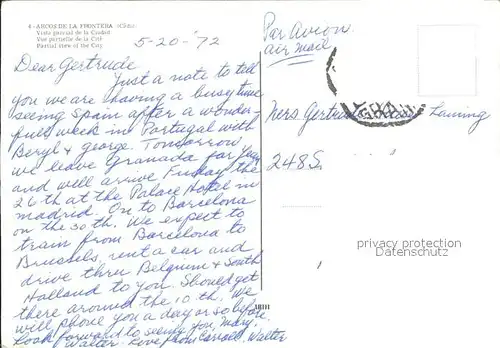 4 - ARCOS DE LA FRONTERA (Cádiz)
Vista parcial de la Ciudad
Vue partielle de la Cité
Partial view of the City
5-20-'72
Dear Gertrude
Just a note to tell
you we are having a busy time
seeing Spain after a wonder-
full week in Portugal with
Beryl & George. Tomorrow
we leave Granada for
and will arrive Friday the
26th at the Palace Hotel in
Madrid. On to Barcelona
on the 30th. We expect to
train from Barcelona to
Brussels, rent a car and
drive thru Belgium & South
Holland to you. Should get
there around the 10th. We
will phone you a day or so before.
Look forward to seeing you, Mary,
Walter. Love from Carroll, Walter
Par Avion
Air Mail
Mers Gertrude Lansing
248S.
privacy protection
Datenschutz